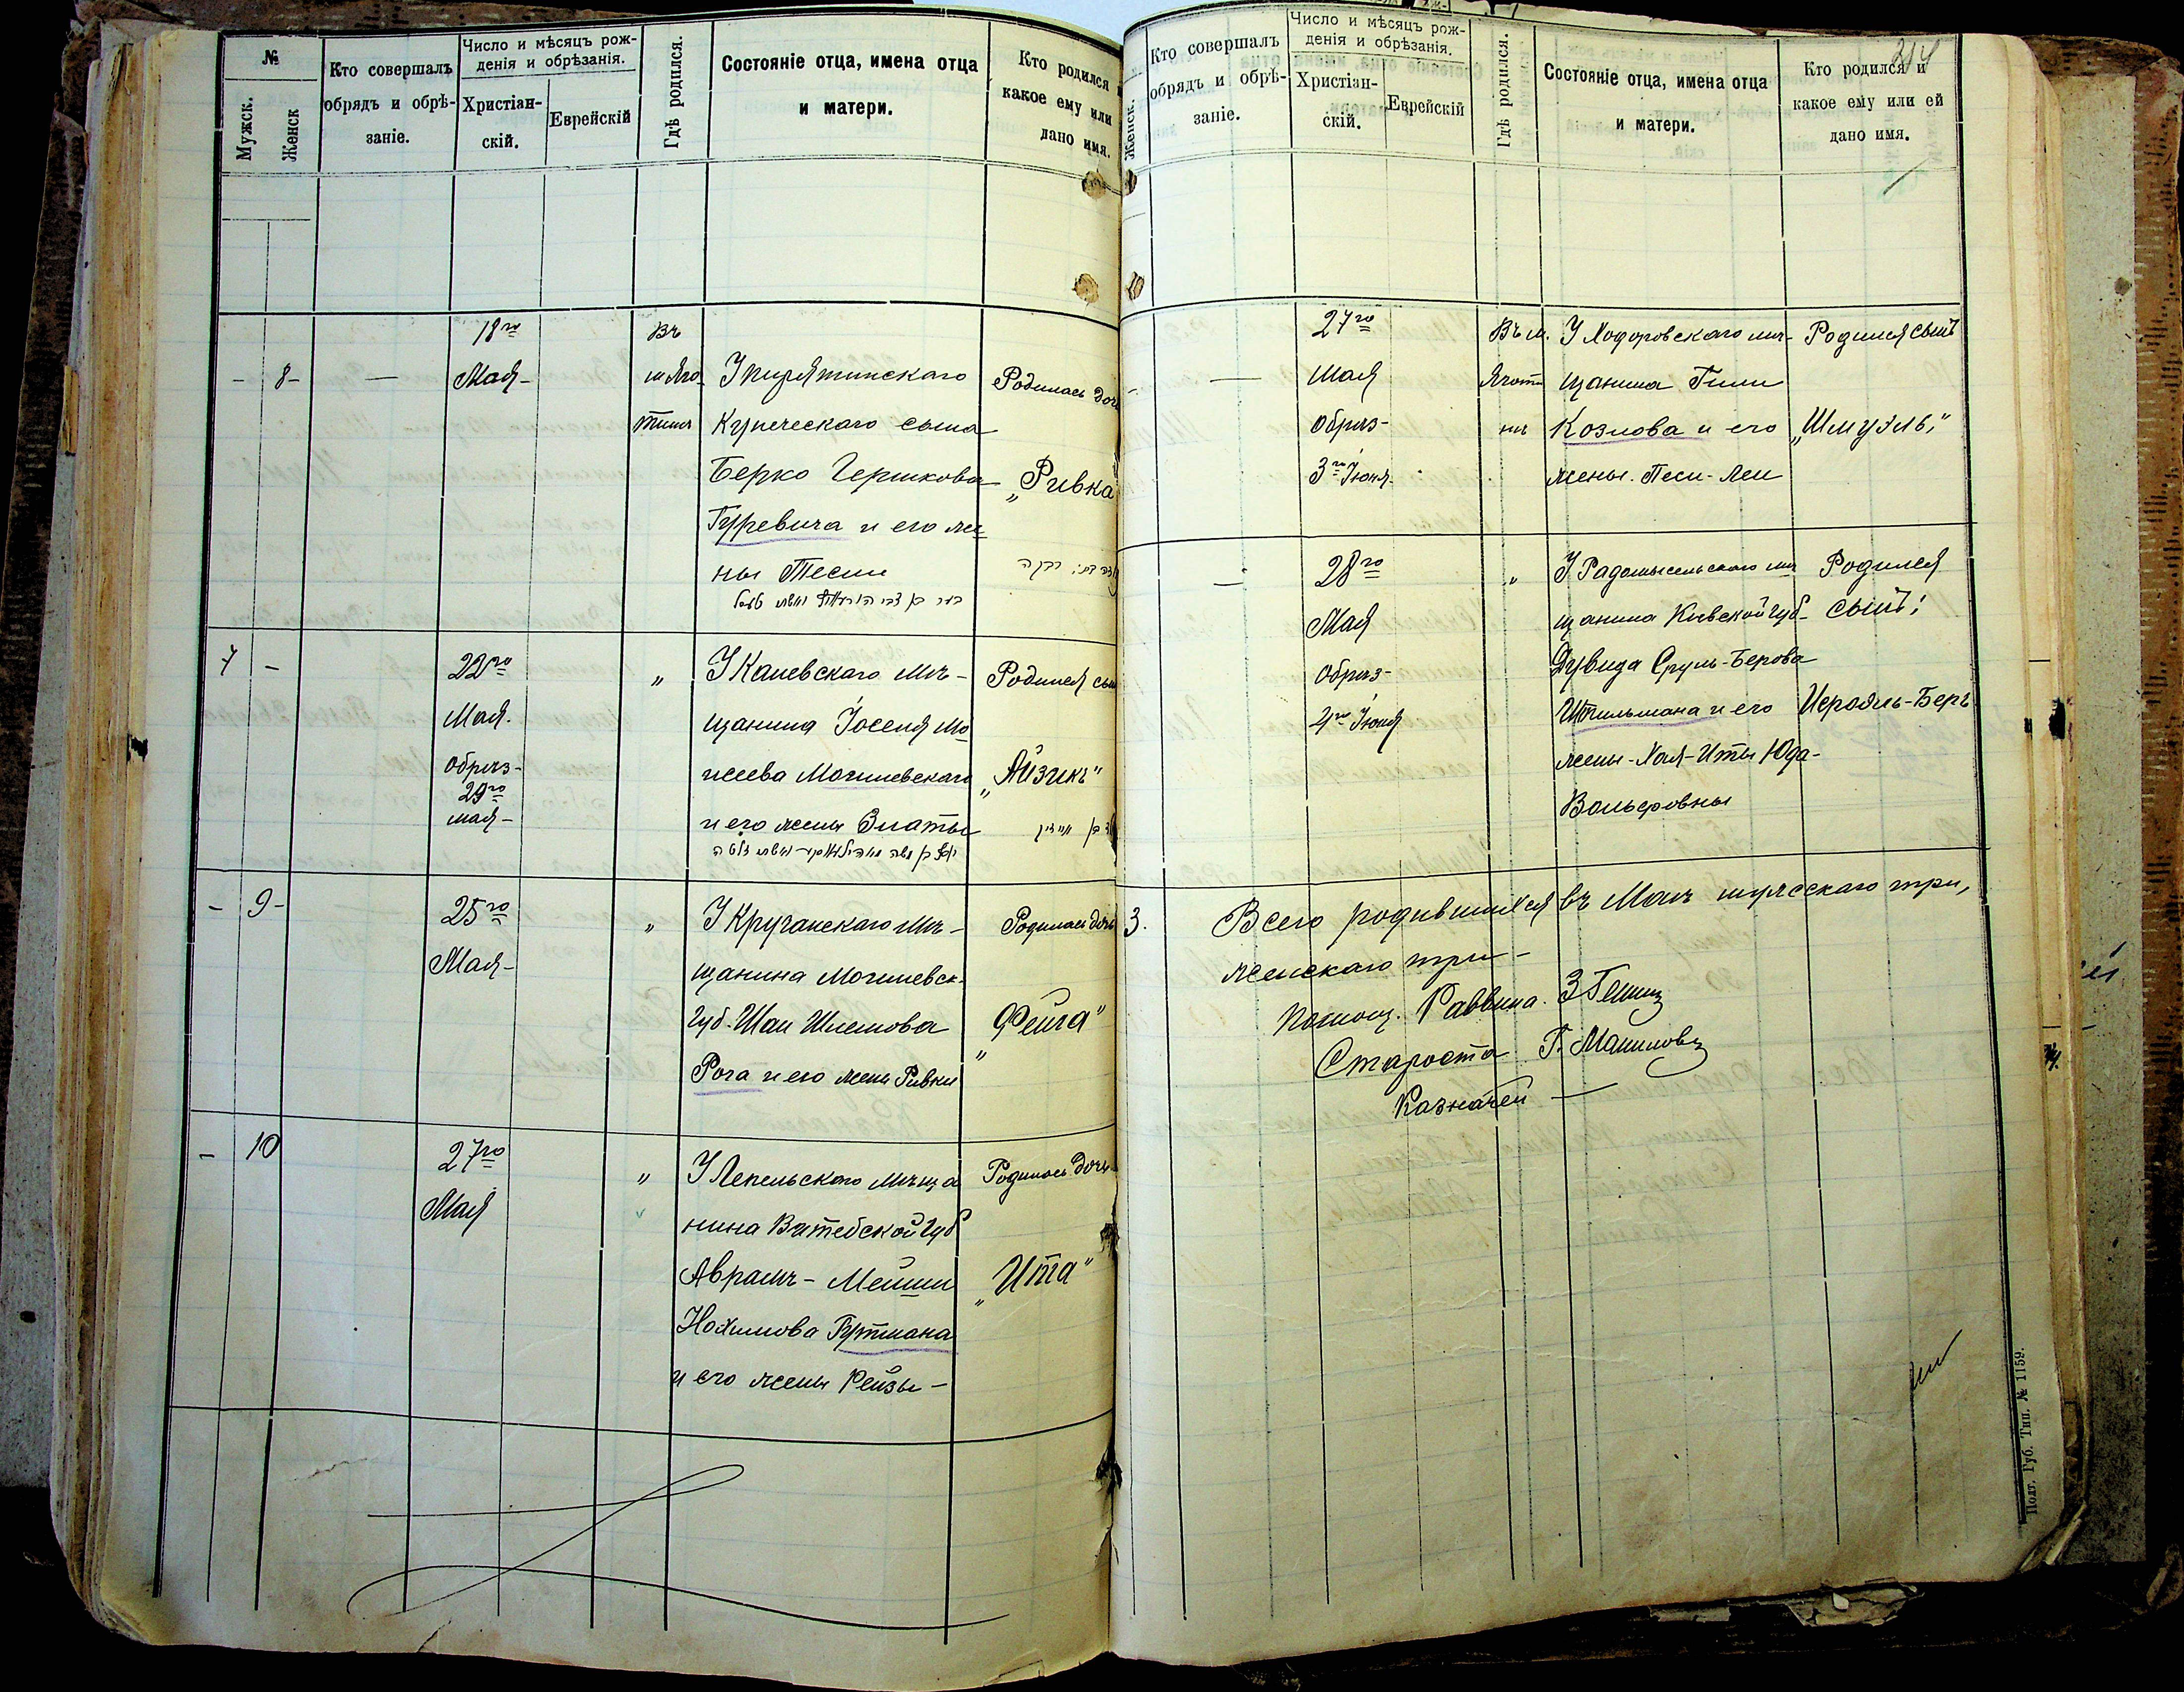 №
Мужск.
Женск
Кто совершалъ
обрядъ и обрѣ-
заніе.
Число и мѣсяцъ рож-
денія и обрѣзанія.
Христіан-
скій.
Еврейскій
Гдѣ родился.
Состояніе отца, имена отца
и матери.
Кто родился
какое ему или
дано имя.
- 8- —
18го
Мая-
Въ
м Яго
тинѣ
У пирятинскаго
Купеческаго сына
Берко Гершкова
Гуревича и его же
ны Песи
Родилась дочь
„Ривка
רבקה
7 -
22го
Мая.
Обрѣз-
29го
мая-
„
У Каневскаго Мѣ-
щанина Іоселя Мо
исеева Могилевскаго
и его жены Златы
Родился сын
„Айзикъ"
- 9-
25го
Мая-
„
У Кручанскаго Мѣ-
щанина Могилевск.
Губ. Шаи Шлемова
Рога и его жены Ривки
Родилась дочь
„Фейга"
- 10
27го
Мая
„
У Лепельскаго Мѣща
нина Витебской Губ
Аврамъ-Мейши
Нохимова Гутмана
и его жены Рейзы-
Родилась дочь
„Ита"
Женск.
Кто совершалъ
обрядъ и обрѣ-
заніе.
Число и мѣсяцъ рож-
денія и обрѣзанія.
Христіан-
скій.
Еврейскій
Гдѣ родился.
Состояніе отца, имена отца
и матери.
Кто родился и
какое ему или ей
дано имя.
- —
27го
Мая
Обрѣз-
3го Іюня.
Въ м.
Яготи
нѣ
У Ходоровскаго мѣ-
щанина Гили
Козлова и его
жены. Песи-Леи
Родился сынъ
„Шмуэль"
—
28го
Мая
Обрѣз-
4го Іюня
„
У Радомысельскаго мѣ
щанина Кіевской губ-
Дувида Сруль-Берова
Штильмана и его
жены-Хая-Иты Юда-
Вольфовны
Родился
сынъ;
Исроэль-Беръ
3.
Всего родившихся въ Маѣ мужескаго три,
женскаго три-
Помощ. Раввина. З Гениц
Староста Г. Маниловъ
Казначей —
Полт. Губ. Тип. № 1159.